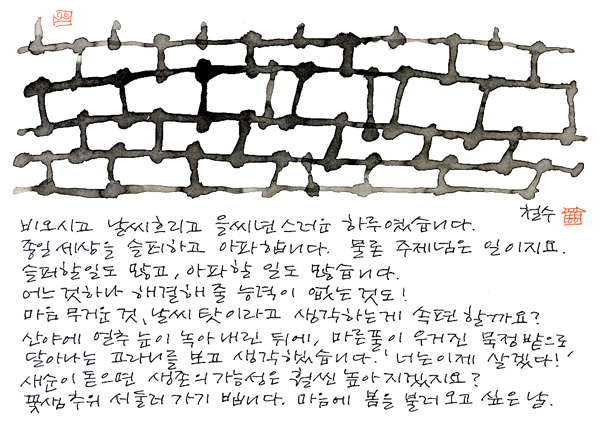 철수
비오시고 날씨흐리고 을씨년스러운 하루였습니다.
종일 세상을 슬퍼하고 아파합니다. 물론 주제넘은 일이지요.
슬퍼할일도 많고, 아파할 일도 많습니다.
어느 것하나 해결해 줄 능력이 없는 것도!
마음 무거운 것, 날씨 탓이라고 생각하는게 속편 할까요?
산야에 연추 높이 녹아 내린 뒤에, 마른풀이 우거진 묵정밭으로
달아나는 고라니를 보고 생각했습니다. '너는 이제 살겠다!'
새순이 돋으면 생존의 가능성은 훨씬 높아지겠지요?
꽃샘추위 서둘러 가기 빕니다. 마음에 봄을 불러오고 싶은 날.